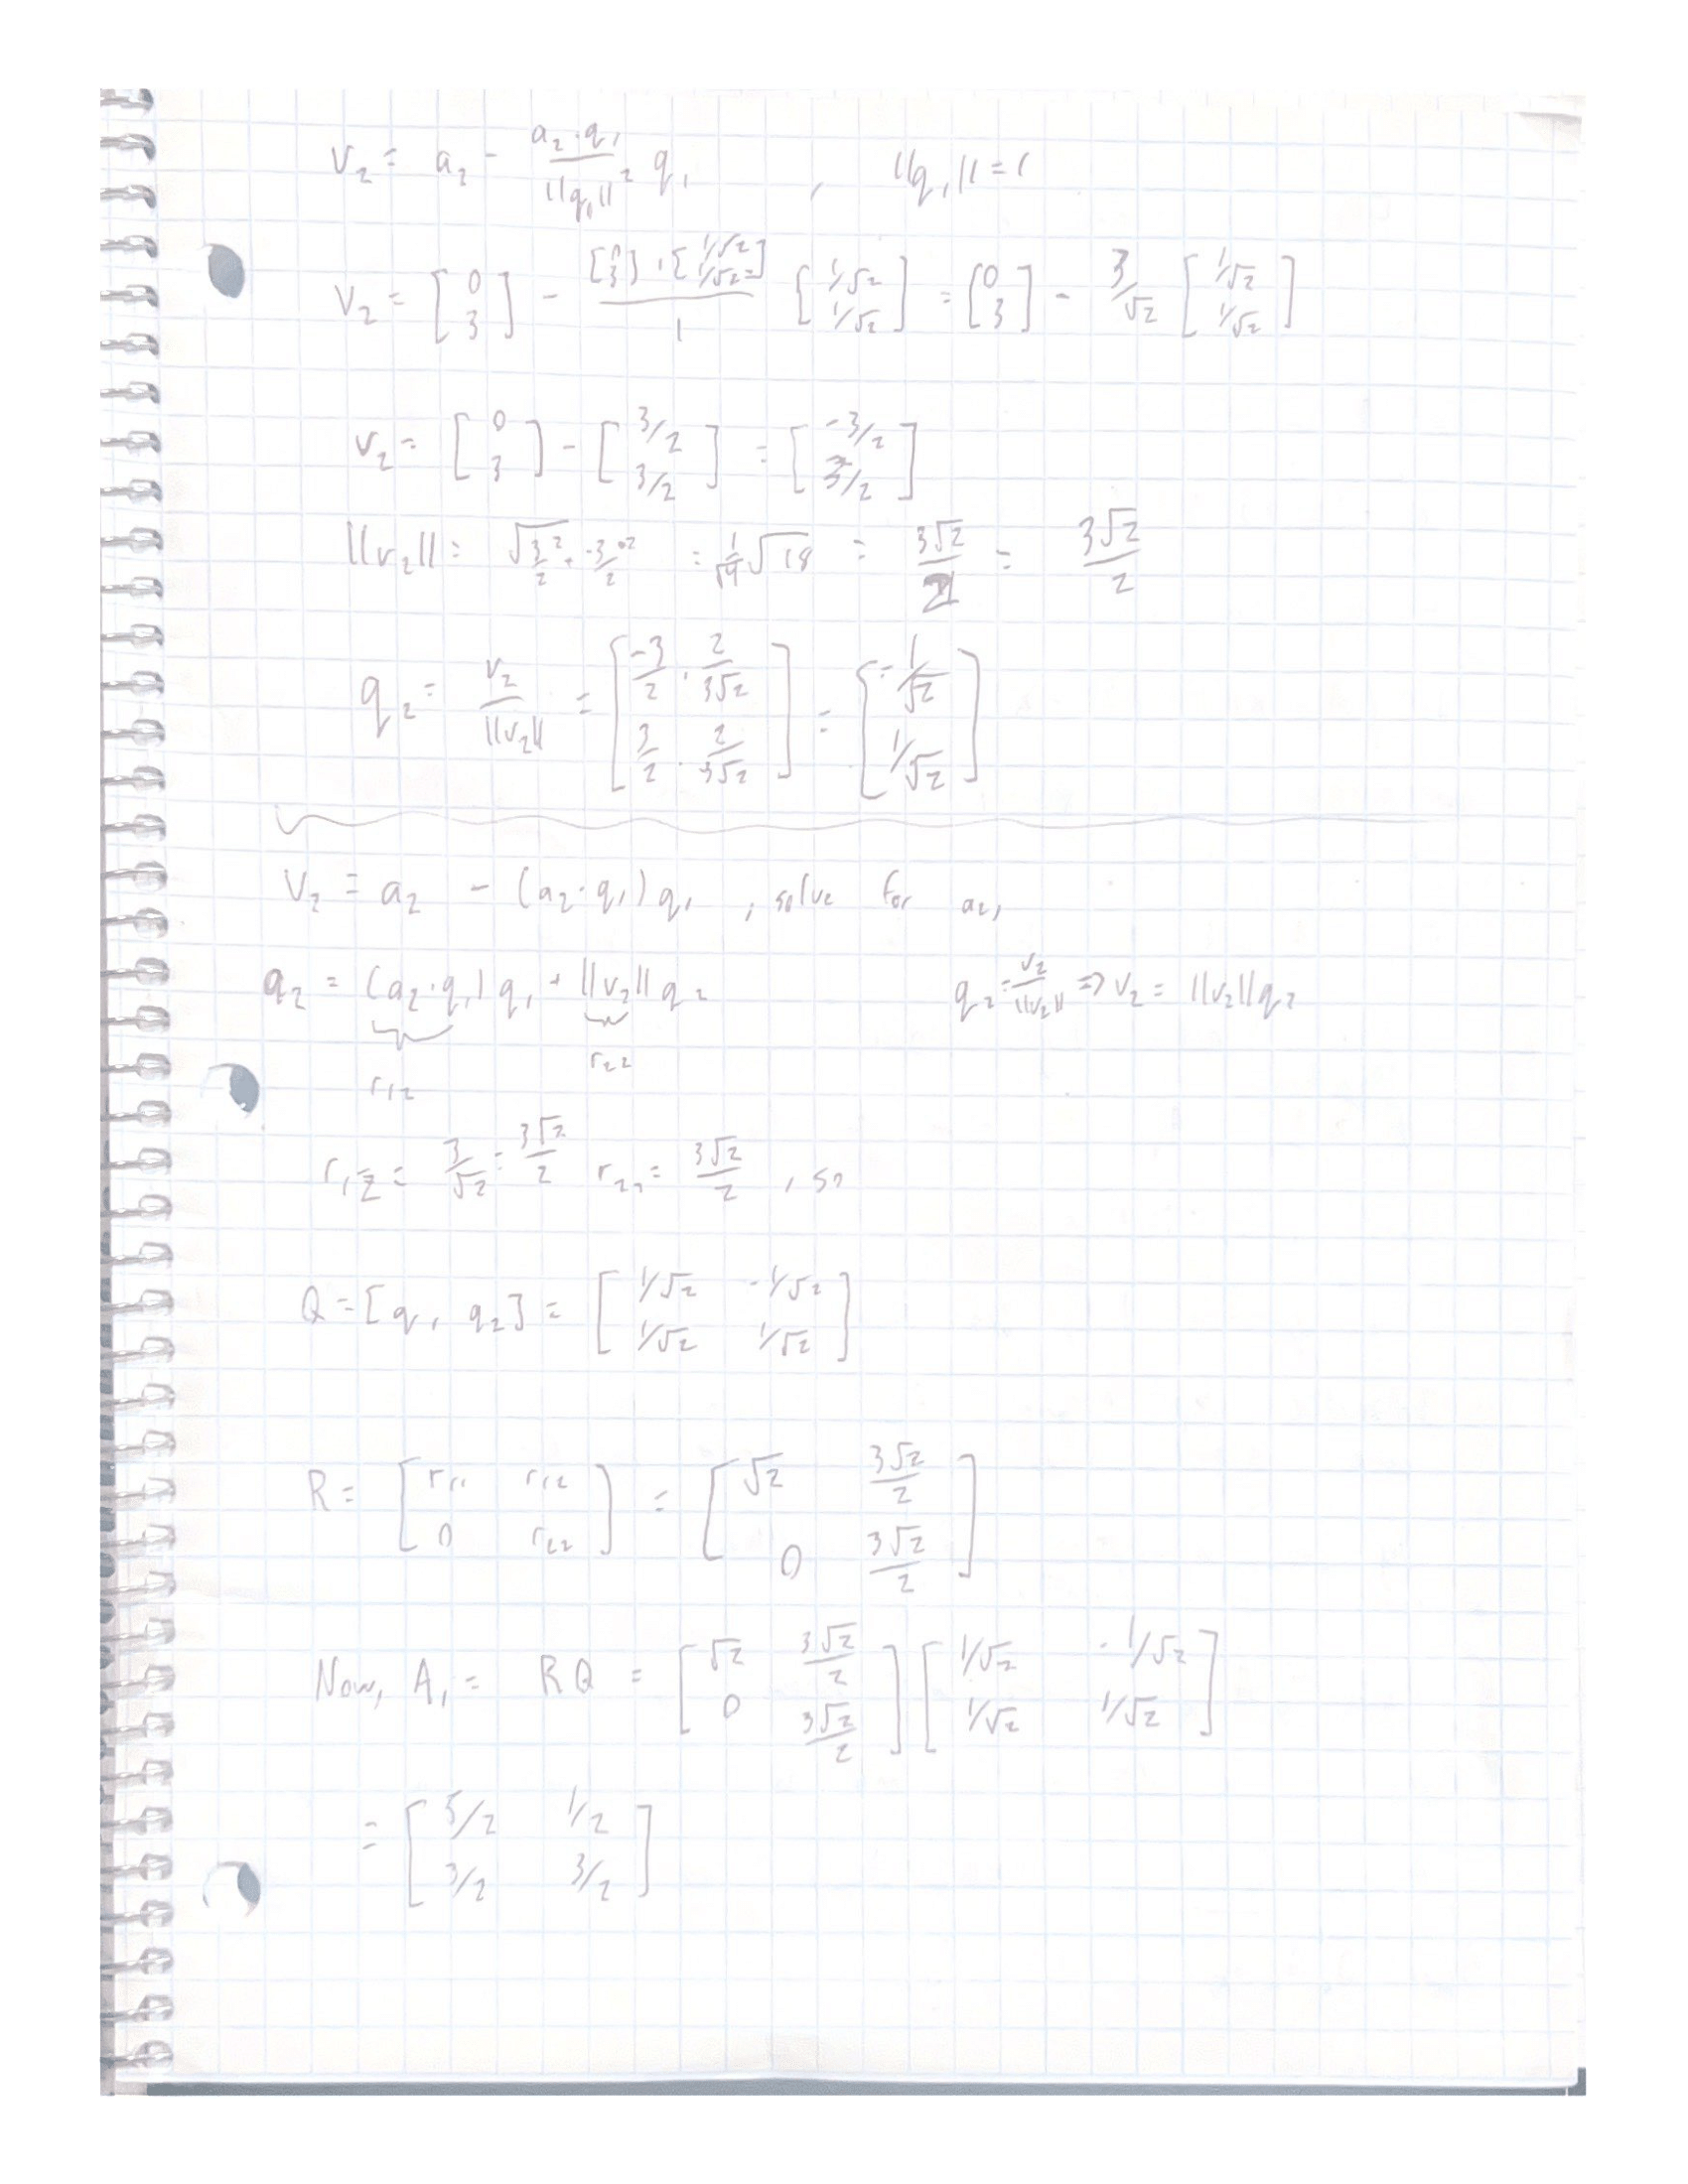 v₂ = a₂ - (a₂·q₁)/||q₁||² q₁ , ||q₁|| = 1
v₂ = [0; 3] - ([0; 3]·[1/√2; 1/√2])/1 [1/√2; 1/√2] = [0; 3] - 3/√2 [1/√2; 1/√2]
v₂ = [0; 3] - [3/2; 3/2] = [-3/2; 3/2]
||v₂|| = √(3/2² + -3/2²) = 1/√4 √18 = 3√2/2 = 3√2/2
q₂ = v₂/||v₂|| = [-3/2 · 2/3√2; 3/2 · 2/3√2] = [-1/√2; 1/√2]
v₂ = a₂ - (a₂·q₁)q₁ , solve for a₂,
a₂ = (a₂·q₁)q₁ + ||v₂||q₂ q₂ = v₂/||v₂|| => v₂ = ||v₂||q₂
r₁₂ r₂₂
r₁₂ = 3/√2 = 3√2/2 r₂₂ = 3√2/2 , so
Q = [q₁ q₂] = [1/√2 -1/√2; 1/√2 1/√2]
R = [r₁₁ r₁₂; 0 r₂₂] = [√2 3√2/2; 0 3√2/2]
Now, A₁ = RQ = [√2 3√2/2; 0 3√2/2][1/√2 -1/√2; 1/√2 1/√2]
= [5/2 1/2; 3/2 3/2]